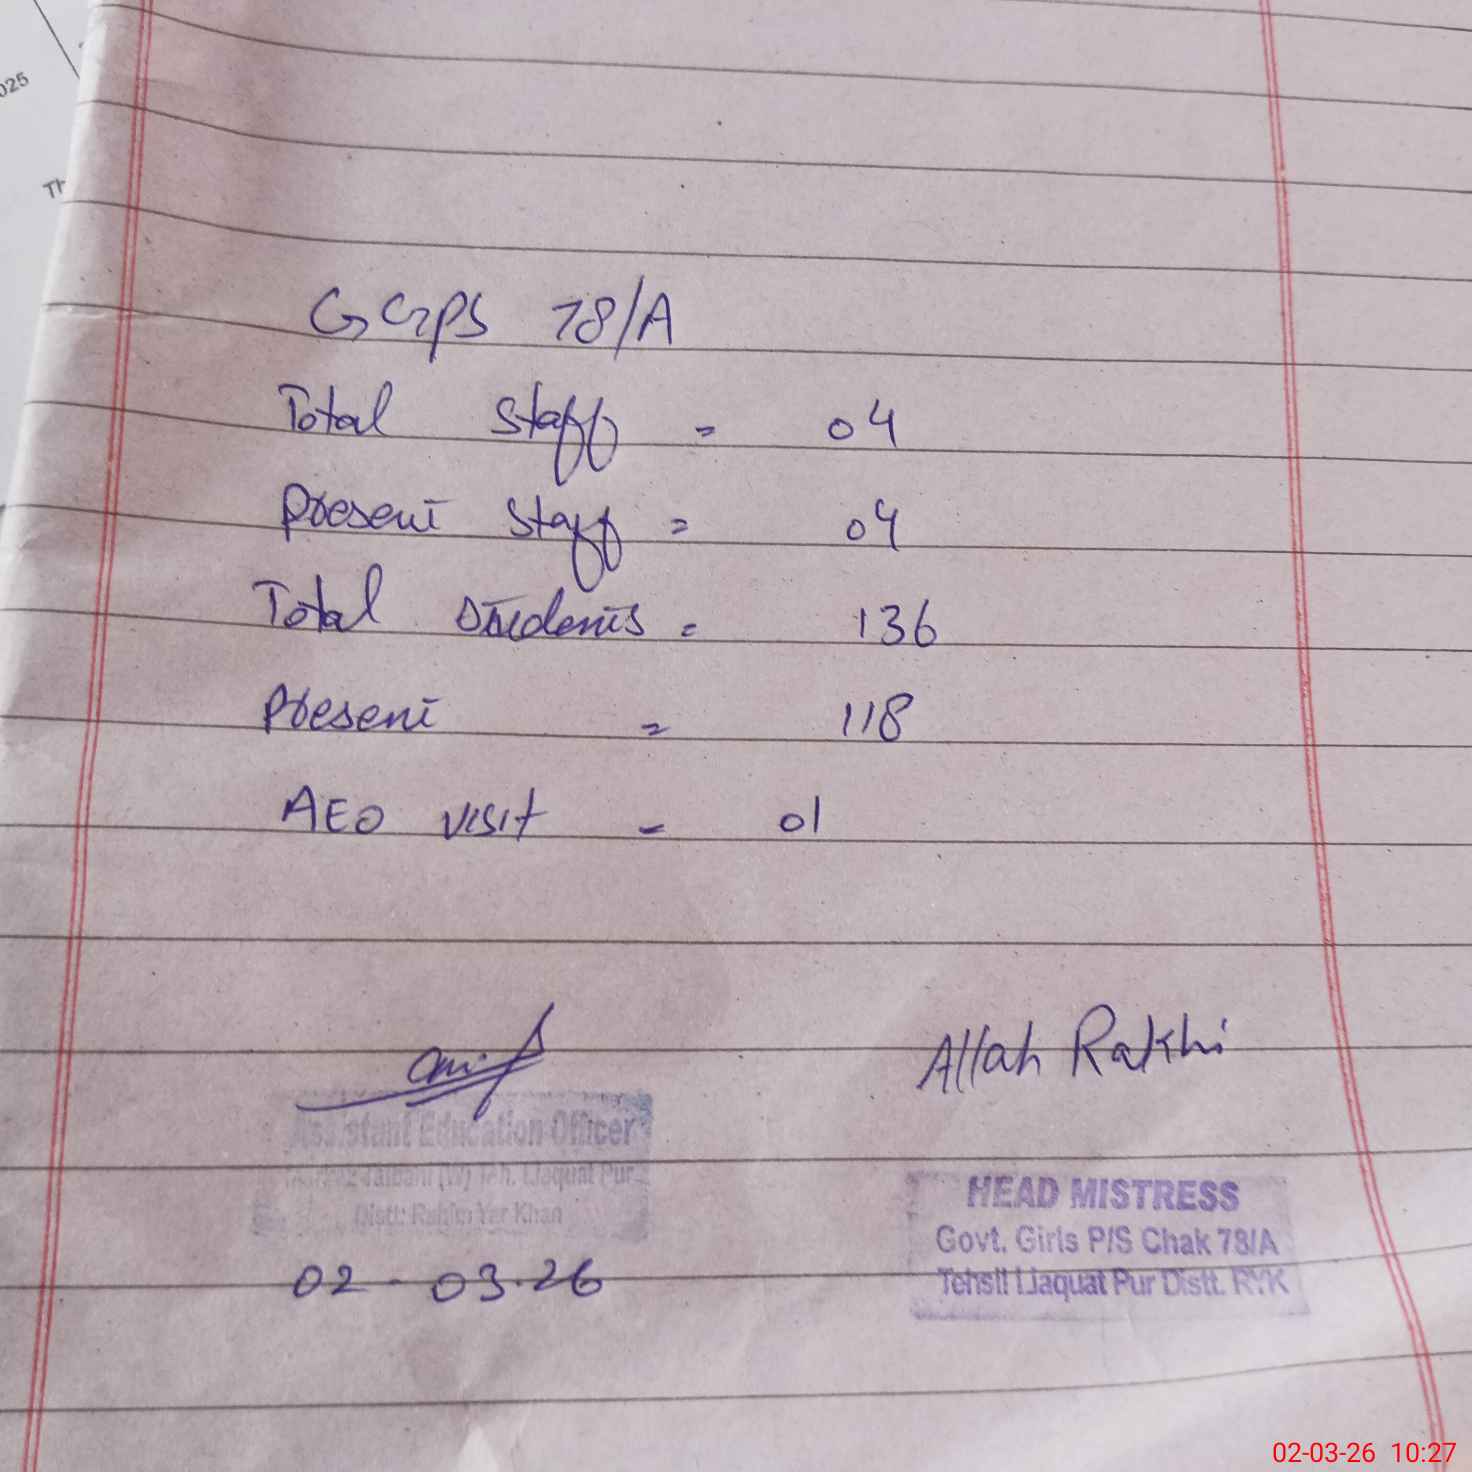 025
Th
GGPS 78/A
Total Staff = 04
Present Staff = 04
Total Students = 136
Present = 118
AEO visit - 01
Allah Rakhi
Assistant Education Officer
(W) Teh. Liaquat Pur
Distt: Rahim Yar Khan
HEAD MISTRESS
Govt. Girls P/S Chak 78/A
Tehsil Liaquat Pur Distt. RYK
02-03-26
02-03-26 10:27